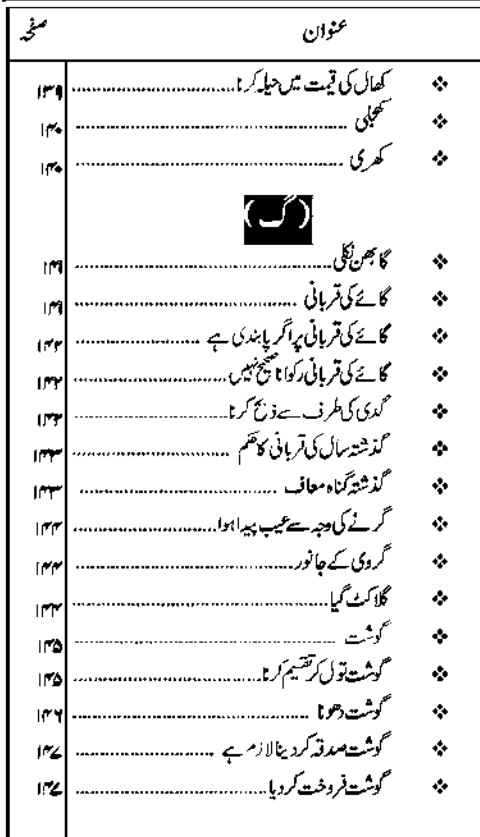 عنوان صفحہ
❖ کھال کی قیمت میں حیلہ کرنا ........ ۱۳۹
❖ کھجلی ........ ۱۴۰
❖ کھری ........ ۱۴۰
(گ)
❖ گابھن نکلی ........ ۱۴۱
❖ گائے کی قربانی ........ ۱۴۱
❖ گائے کی قربانی پر اگر پابندی ہے ........ ۱۴۲
❖ گائے کی قربانی رکوانا صحیح نہیں ........ ۱۴۲
❖ گدی کی طرف سے ذبح کرنا ........
❖ گذشتہ سال کی قربانی کا حکم ........ ۱۴۳
❖ گذشتہ گناہ معاف ........ ۱۴۳
❖ گرنے کی وجہ سے عیب پیدا ہوا ........ ۱۴۴
❖ گروی کے جانور ........ ۱۴۴
❖ گلا کٹ گیا ........ ۱۴۴
❖ گوشت ........ ۱۴۵
❖ گوشت تول کر تقسیم کرنا ........ ۱۴۵
❖ گوشت دھونا ........ ۱۴۶
❖ گوشت صدقہ کر دینا لازم ہے ........ ۱۴۷
❖ گوشت فروخت کر دیا ........ ۱۴۷